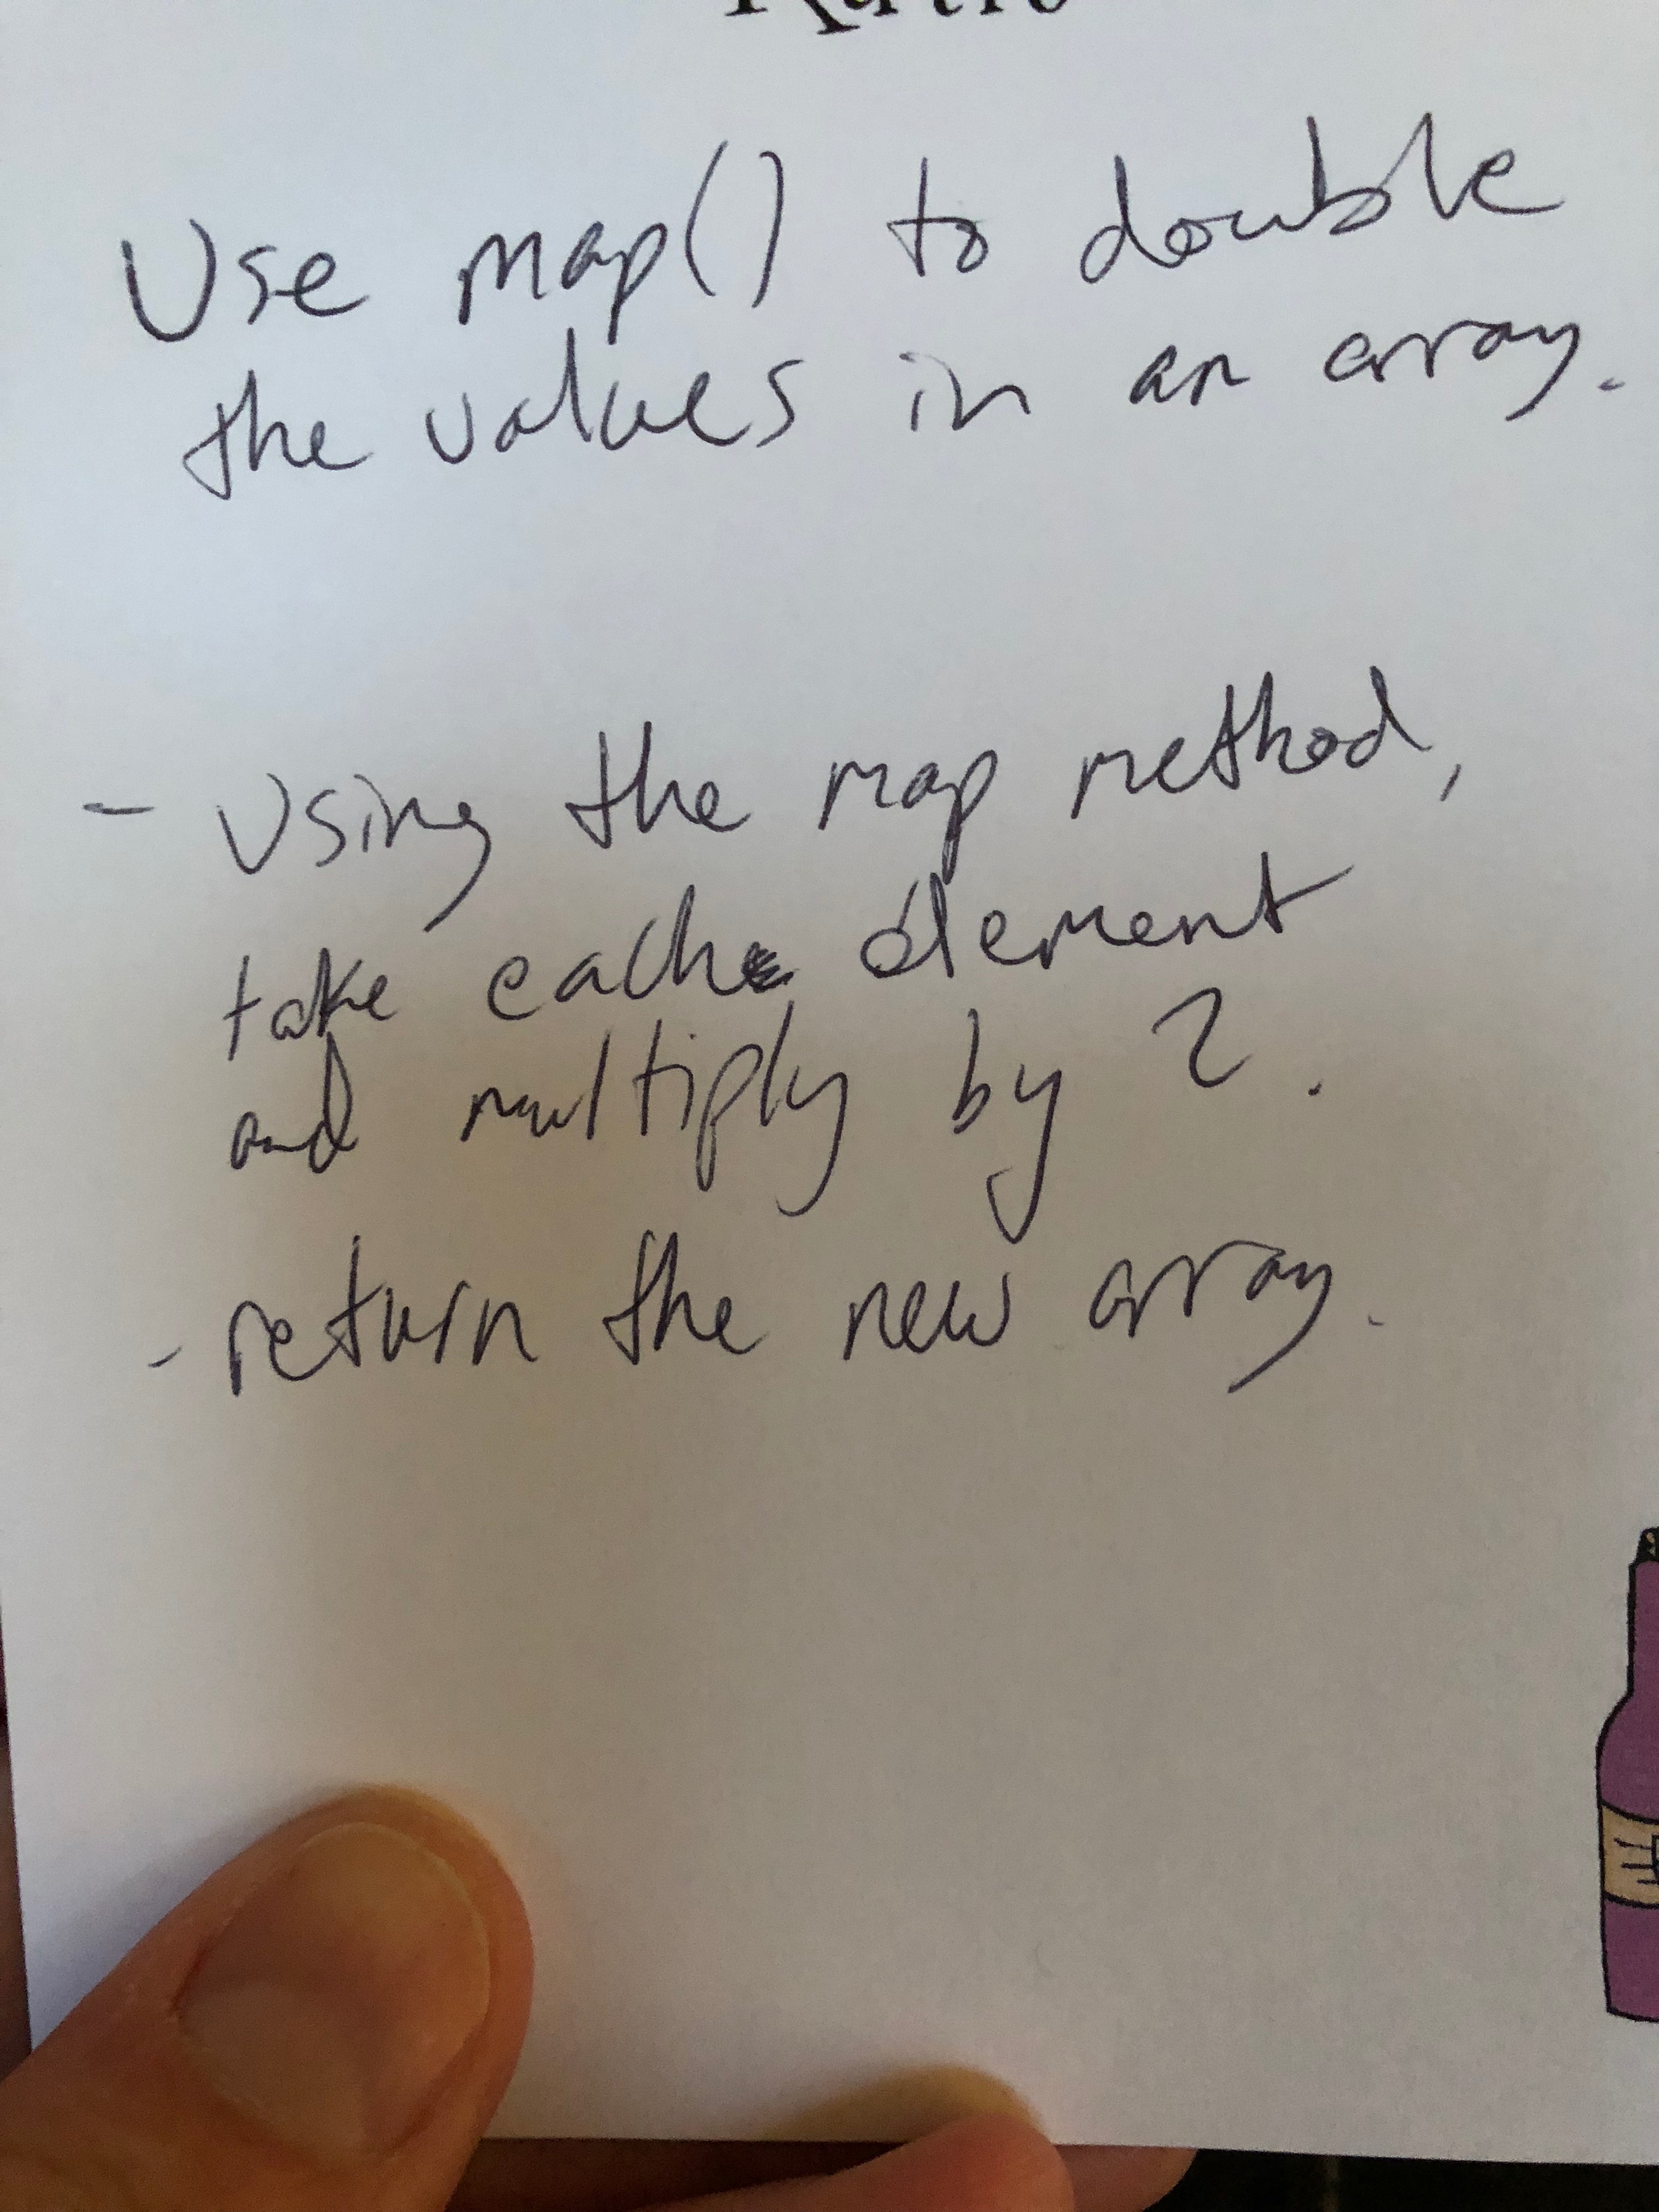 Use map() to double
the values in an array.
- Using the map method,
take each element
and multiply by 2.
- return the new array.